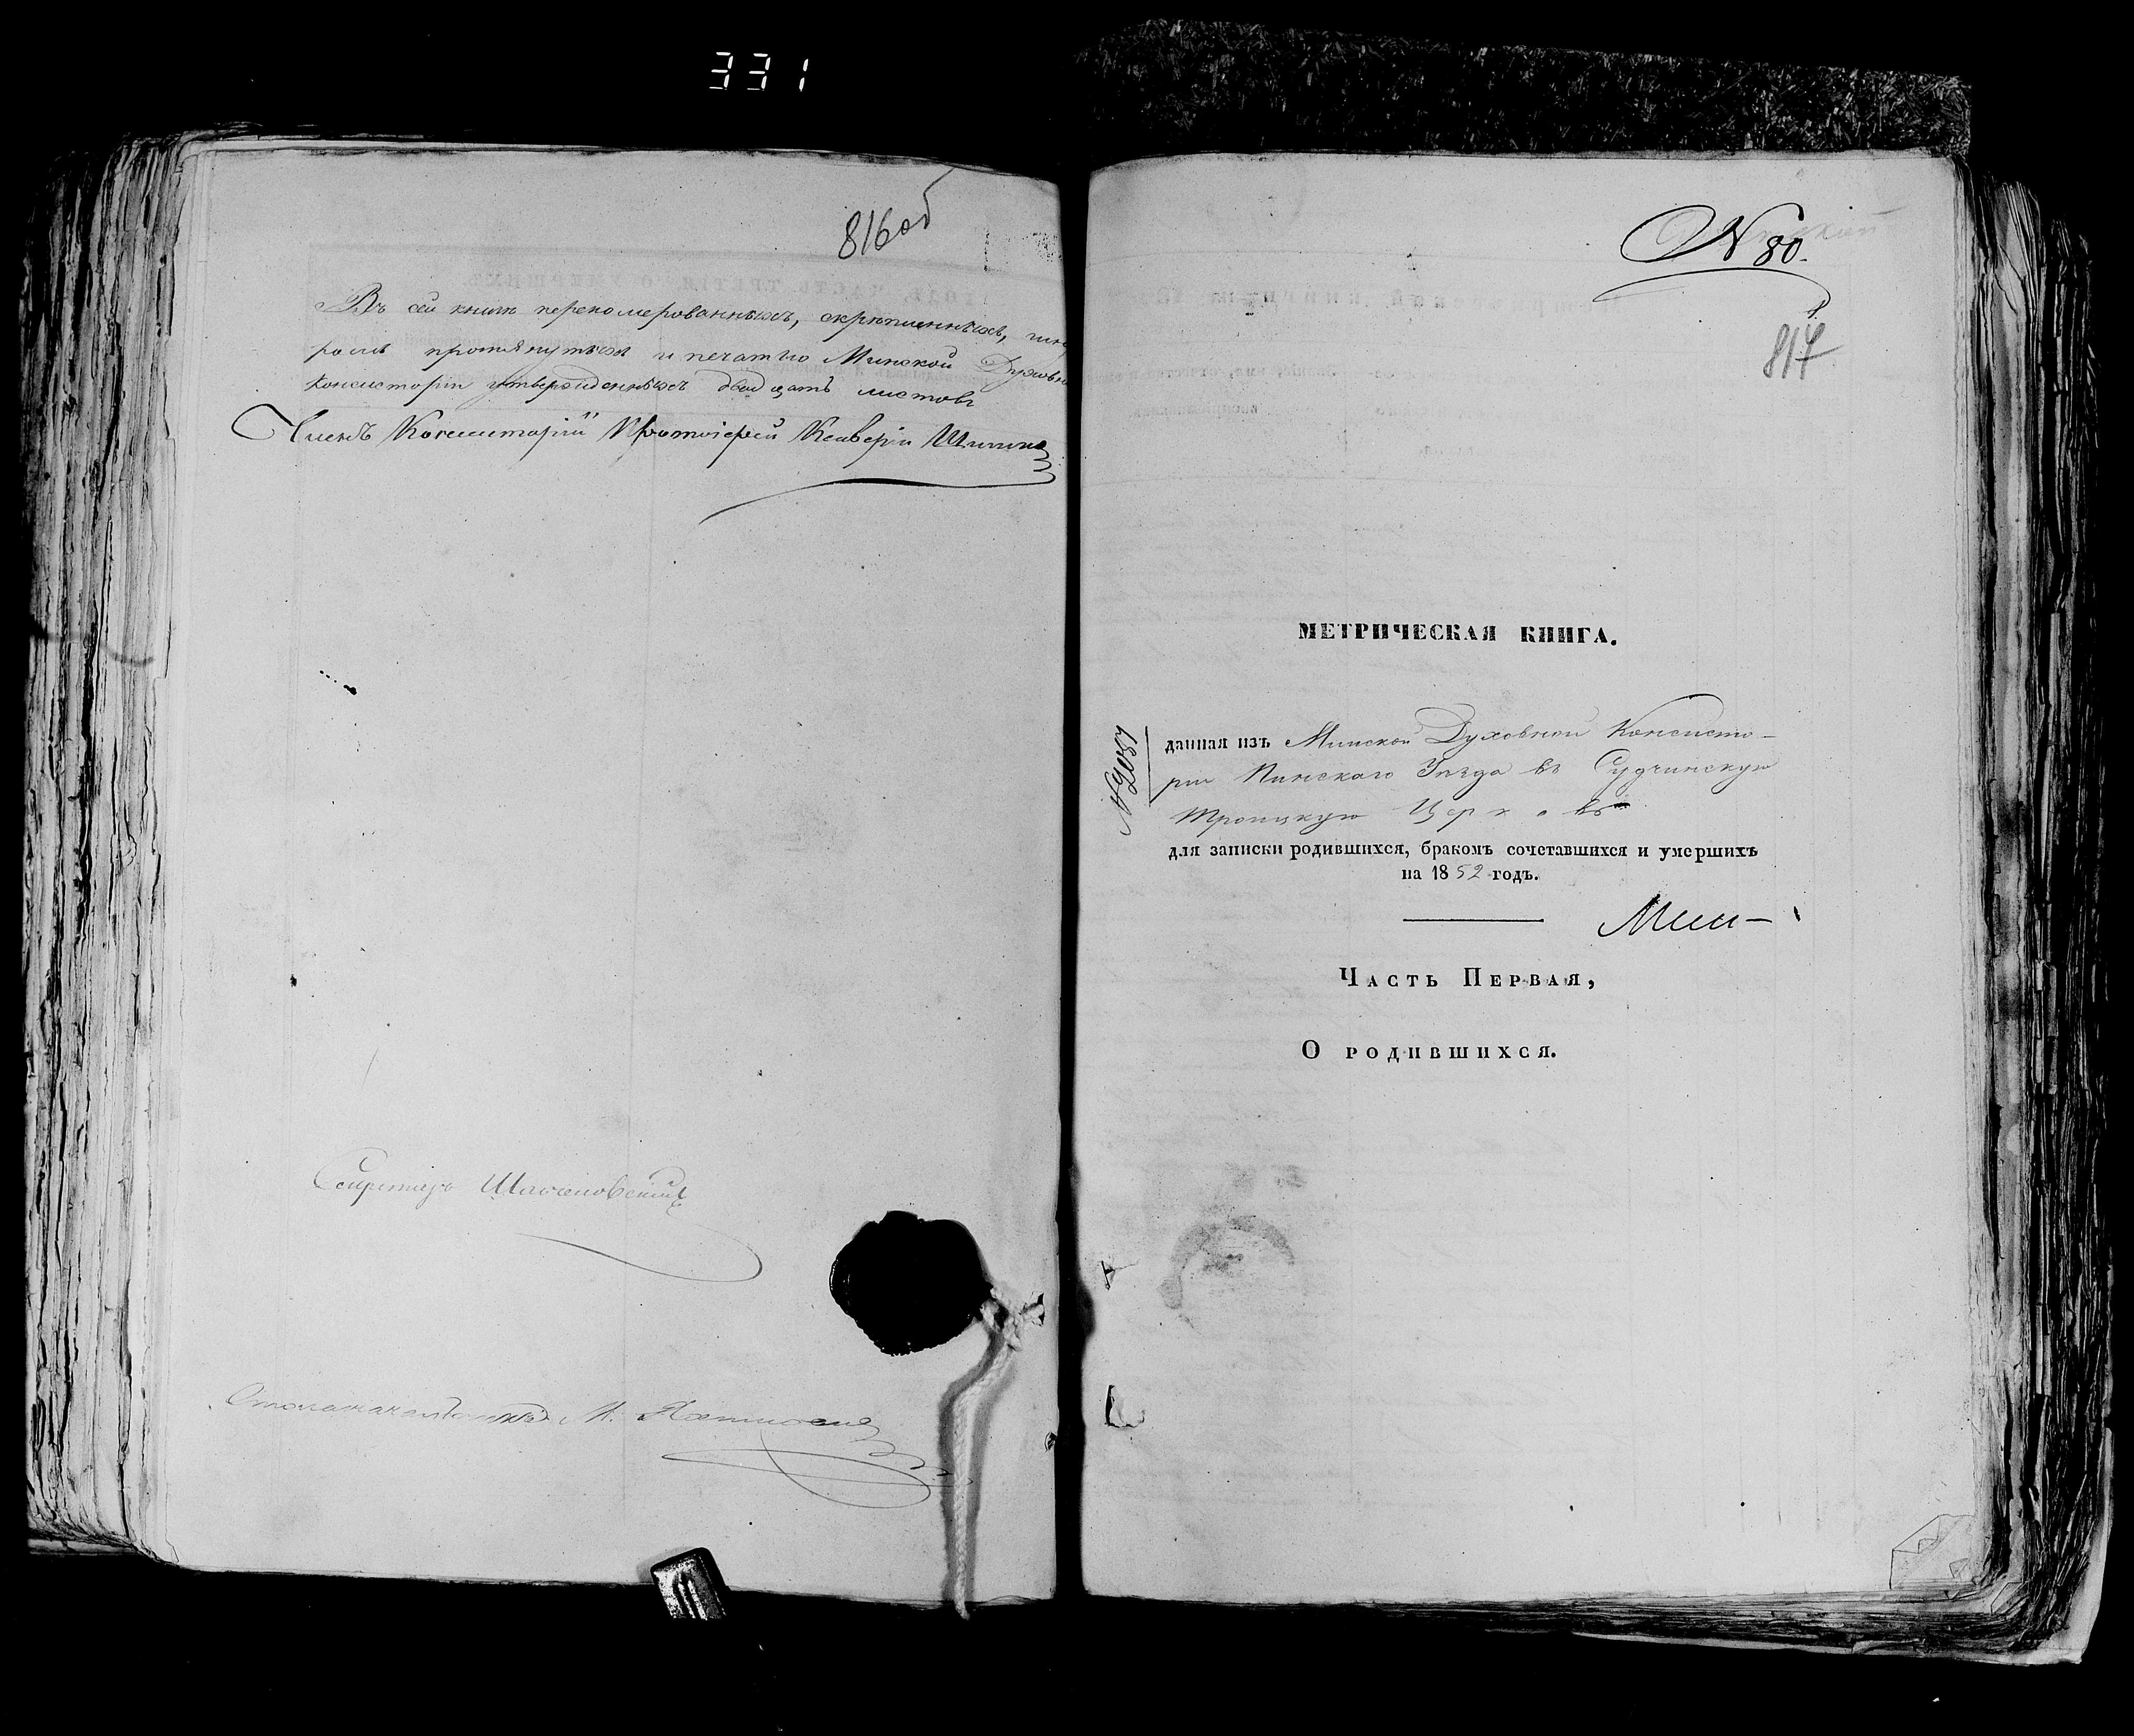 331
816об
Въ сей книгѣ перекомерованныхъ, скрѣпленныхъ, шну
ромъ протянутыхъ и печатью Минской Духовн
Консисторіи утвержденныхъ двадцать листовъ
Членъ Консисторіи Протоіерей Ксаверій
Секретарь
Столоначальникъ М.
N 80.
1
817
МЕТРИЧЕСКАЯ КНИГА.
N 2087
данная изъ Минской Духовной Консисто-
ріи Пинскаго Уѣзда въ Судчинскую
Троицкую Церковь
для записки родившихся, бракомъ сочетавшихся и умершихъ
на 1852 годъ.
Часть Первая,
О родившихся.